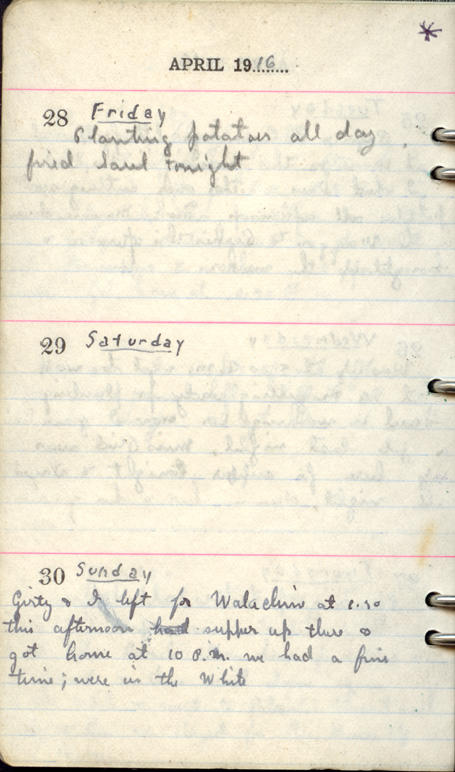 APRIL 1916
28 Friday
Planting potatoes all day
fired Saul tonight
29 Saturday
30 Sunday
Girty & I left for Walachin at 1.30
this afternoon had supper up there &
got home at 10 P.M. we had a fine
time; were in the White